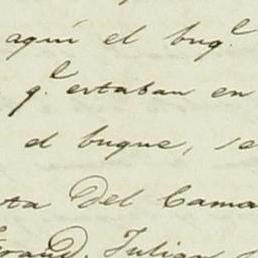 aquí el buq.e
q.e estaban en
el buque, se
ta del Cama
Julian